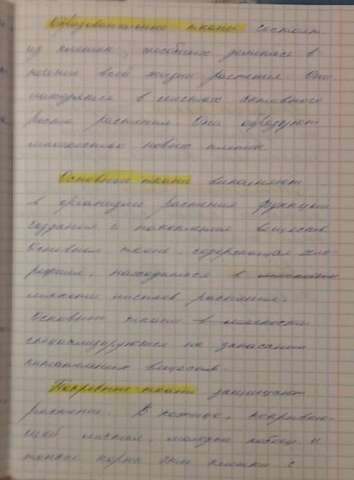 Образовательные ткани состоят
из клеток, способных делиться в
течение всей жизни растения. Они
находятся в местах активного
роста растения. Они образуют
множество новых клеток.
Основные ткани выполняют
в организме растения функции
создания и накопления веществ.
Основная ткань, содержащая хло-
рофилл, находится в
мякоти листьев растения.
Основные ткани в
специализируются на запасании
питательных веществ.
Покровные ткани защищают
растение. В кожице, покрываю-
щей листья, молодые побеги и
тонкие корни, клетки с